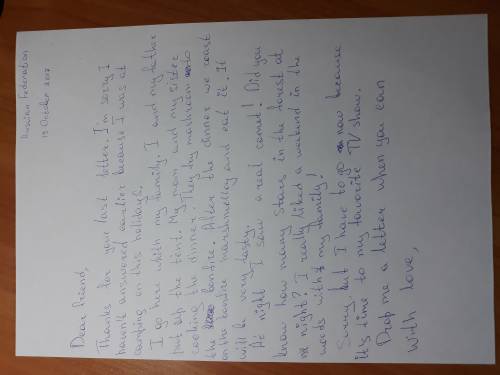 Russian Federation
19 October 2017
Dear friend,
Thanks for your last letter. I'm sorry I
haven't answered earlier because I was at
camping on this holidays.
I go here with my family. I and my father
put up the tent. My mom and my sister
cooking the dinner. They fry mashroom
the bonfire. After the dinner we roast
on the bonfire marshmallow and eat it. It
will be very tasty.
At night I saw a real comet! Did you
know how many stars in the forest at
night? I really liked a weekend in the
woods with my family!
Sorry, but I have to go now because
it's time to my favorite TV show.
Drop me a letter when you can
With love,